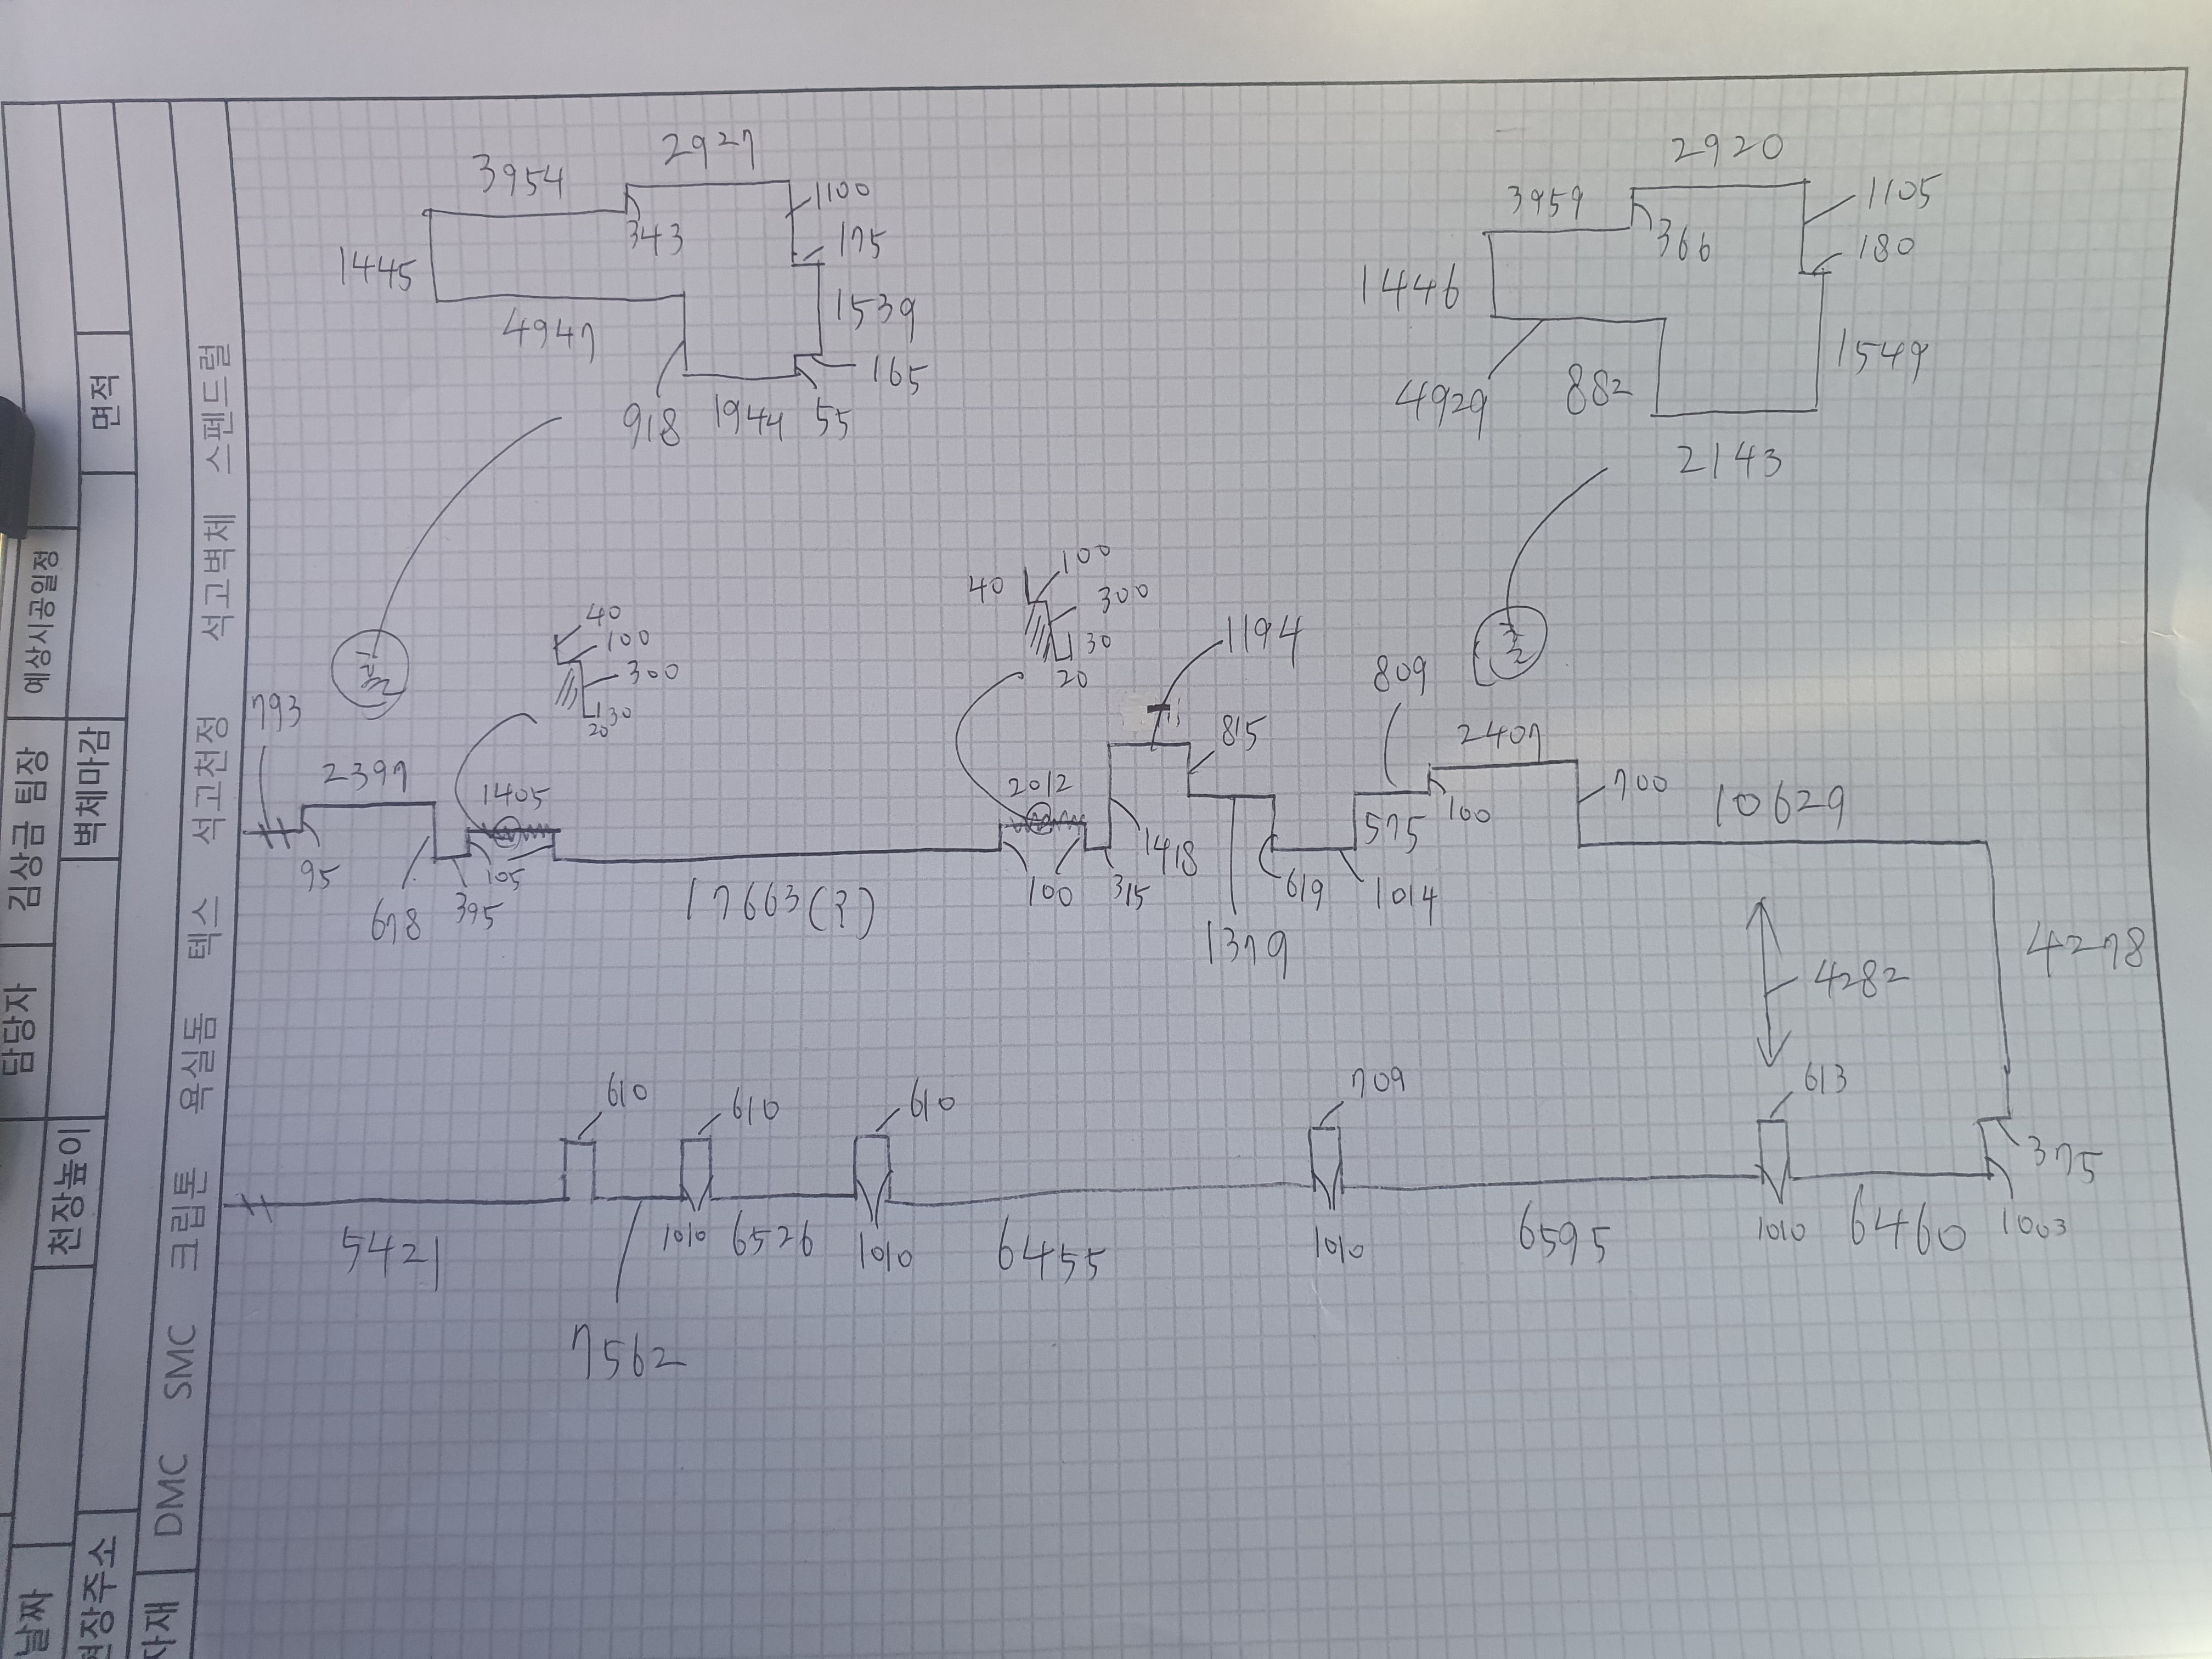 2927
3954
1100
343
175
1445
1539
4947
165
918
1944
55
2920
3959
1105
366
180
1446
1549
4929
882
2143
40
100
300
30
20
40
100
300
30
20
1194
809
793
815
2397
1405
2012
2407
700
10629
95
105
575
100
1418
678
395
17663(?)
100
315
619
1014
1379
4278
4282
610
610
610
709
613
375
5421
1010
6526
1010
6455
1010
6595
1010
6460
1003
7562
날짜
담당자
김상금 팀장
예상시공일정
현장주소
천장높이
벽체마감
면적
자재
DMC SMC 크립톤 욕실돔 텍스 석고천정 석고벽체 스펜드럴